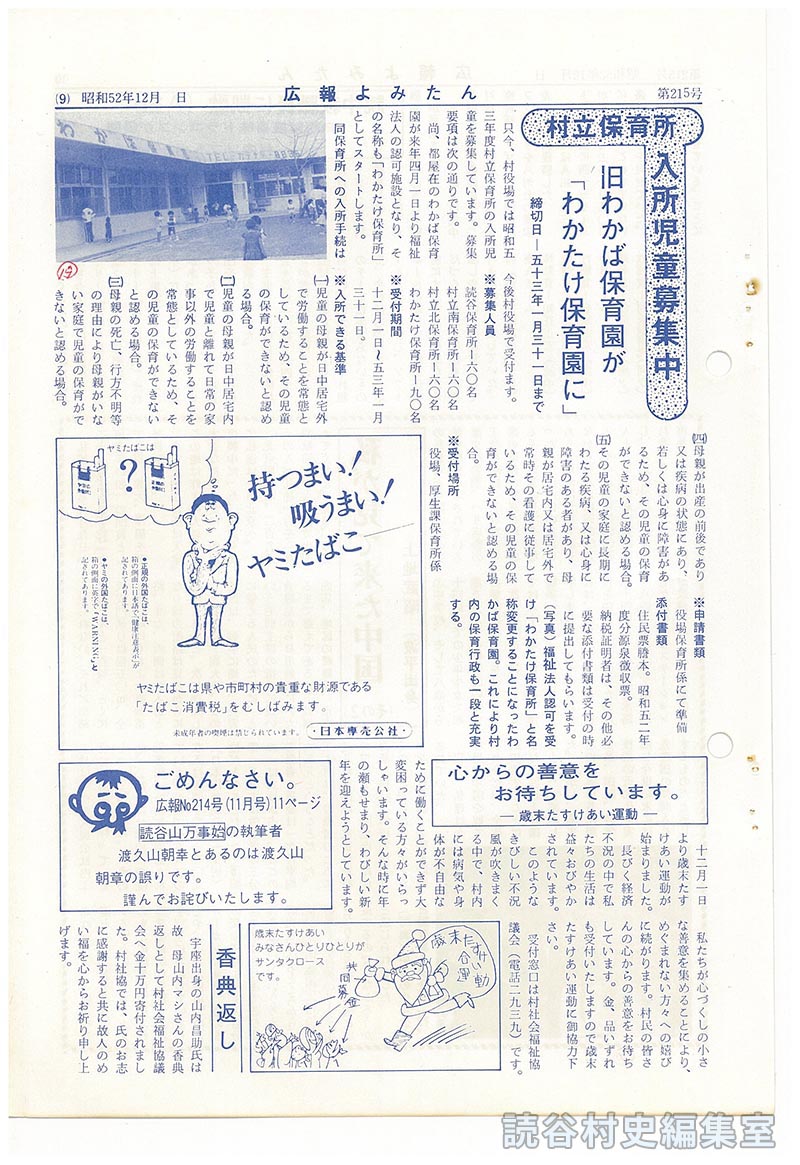 (9) 昭和52年12月　日
広報よみたん
第215号
村立保育所
入所児童募集中
旧わかば保育園が
「わかたけ保育園に」
締切日―五十三年一月三十一日まで
只今、村役場では昭和五
三年度村立保育所の入所児
童を募集しています。募集
要項は次の通りです。
尚、都屋在のわかば保育
園が来年四月一日より福祉
法人の認可施設となり、そ
の名称も「わかたけ保育所」
としてスタートします。
同保育所への入所手続は
今後村役場で受付ます。
※募集人員
読谷保育所―六〇名
村立南保育所―六〇名
村立北保育所―六〇名
わかたけ保育所―九〇名
※受付期間
十二月一日～五三年一月
三十一日。
※入所できる基準
(一)児童の母親が日中居宅外
で労働することを常態と
しているため、その児童
の保育ができないと認め
る場合。
(二)児童の母親が日中居宅内
で児童と離れて日常の家
事以外の労働することを
常態としているため、そ
の児童の保育ができない
と認める場合。
(三)母親の死亡、行方不明等
の理由により母親がいな
い家庭で児童の保育がで
きないと認める場合。
(四)母親が出産の前後であり
又は疾病の状態にあり、
若しくは心身に障害があ
るため、その児童の保育
ができないと認める場合。
(五)その児童の家庭に長期に
わたる疾病、又は心身に
障害のある者があり、母
親が居宅内又は居宅外で
常時その看護に従事して
いるため、その児童の保
育ができないと認める場
合。
※受付場所
役場、厚生課保育所係
※申請書類
役場保育所係にて準備
添付書類
住民票謄本。昭和五二年
度分源泉徴収票。
納税証明者は、その他必
要な添付書類は受付の時
に提出してもらいます。
(写真)福祉法人認可を受
け「わかたけ保育所」と名
称変更することになったわ
かば保育園。これにより村
内の保育行政も一段と充実
する。
ヤミたばこは
?
持つまい!
吸うまい!
ヤミたばこ
●正規の外国たばこは、
箱の側面に日本語で「健康注意表示」が
記されてあります。
●ヤミの外国たばこは、
箱の側面に英字で「WARNING」と
記されてあります。
ヤミたばこは県や市町村の貴重な財源である
「たばこ消費税」をむしばみます。
未成年者の喫煙は禁じられています。
・日本専売公社・
ごめんなさい。
広報No214号(11月号)11ページ
読谷山万事始の執筆者
渡久山朝幸とあるのは渡久山
朝章の誤りです。
謹んでお詫びいたします。
心からの善意を
お待ちしています。
―歳末たすけあい運動―
十二月一日
より歳末たす
けあい運動が
始まりました。
長びく経済
不況の中で私
たちの生活は
益々おびやか
されています。
このような
きびしい不況
風が吹きまく
る中で、村内
には病気や身
体が不自由な
ために働くことができず大
変困っている方々がいらっ
しゃいます。そんな時に年
の瀬もせまり、わびしい新
年を迎えようとしています。
私たちが心づくしの小さ
な善意を集めることにより、
めぐまれない方々への嬉び
に続がります。村民の皆さ
んの心からの善意をお待ち
しています。金、品いずれ
も受付いたしますので歳末
たすけあい運動に御協力下
さい。
受付窓口は村社会福祉協
議会(電話二九三九)です。
歳末たすけあい
みなさんひとりひとりが
サンタクロース
です。
共同募金
歳末たすけ合運動
香典返し
宇座出身の山内昌助氏は
故　母山内マシさんの香典
返しとして村社会福祉協議
会へ金十万円寄付されまし
た。村社協では、氏のお志
に感謝すると共に故人のめ
い福を心からお祈り申し上
げます。
読谷村史編集室